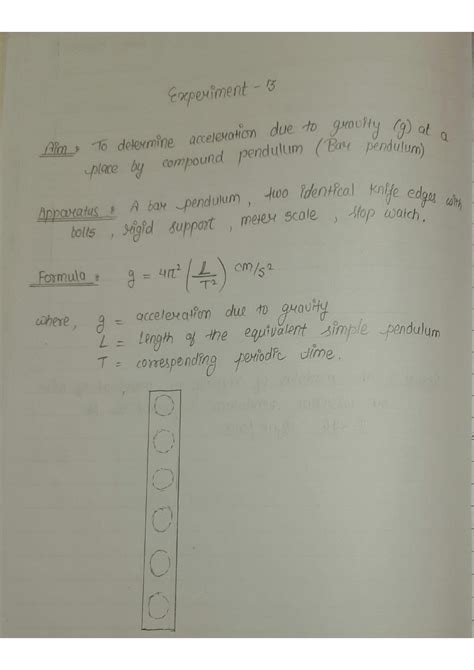 Experiment - 13
Aim :- To determine acceleration due to gravity (g) at a
place by compound pendulum (Bar pendulum)
Apparatus :- A bar pendulum, two identical knife edges with
bolts, rigid support, meter scale, stop watch.
Formula :- g = 4π² (L/T²) cm/s²
where, g = acceleration due to gravity
L = length of the equivalent simple pendulum
T = corresponding periodic time.